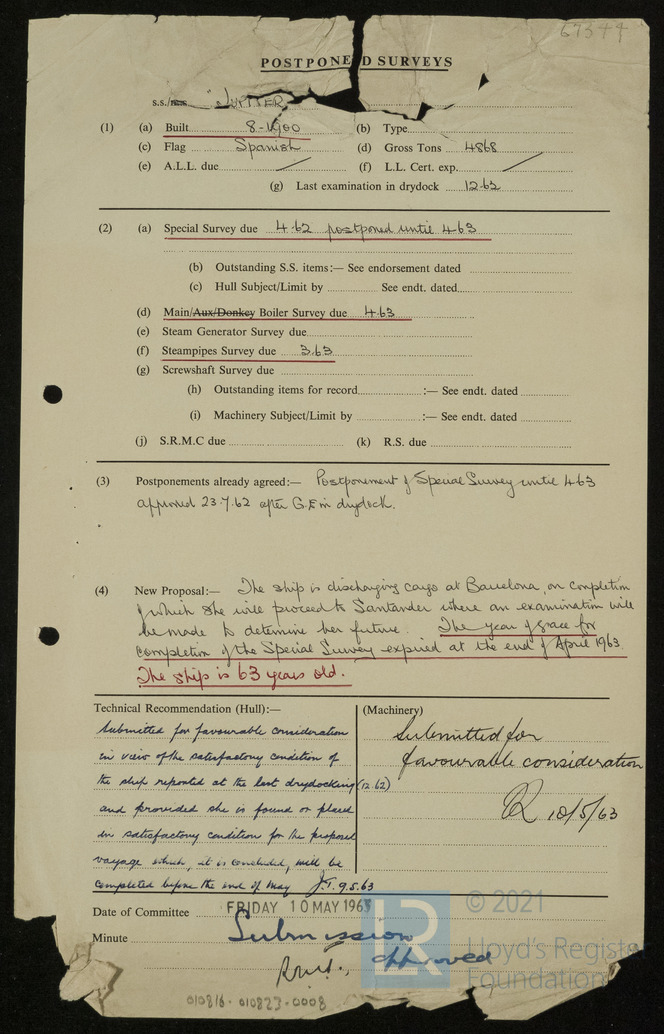 67344
POSTPONED SURVEYS
s.s./m.s. "JUPITER"
(1) (a) Built 8-1900 (b) Type
(c) Flag Spanish (d) Gross Tons 4868
(e) A.L.L. due (f) L.L. Cert. exp.
(g) Last examination in drydock 12.62
(2) (a) Special Survey due 4.62 postponed until 4.63
(b) Outstanding S.S. items:— See endorsement dated
(c) Hull Subject/Limit by See endt. dated
(d) Main/Aux/Donkey Boiler Survey due 4.63
(e) Steam Generator Survey due
(f) Steampipes Survey due 3.63
(g) Screwshaft Survey due
(h) Outstanding items for record :— See endt. dated
(i) Machinery Subject/Limit by :— See endt. dated
(j) S.R.M.C due (k) R.S. due
(3) Postponements already agreed:— Postponement of Special Survey until 4.63
approved 23.7.62 after G.E in drydock.
(4) New Proposal:— The ship is discharging cargo at Barcelona, on completion
of which she will proceed to Santander where an examination will
be made to determine her future. The year of grace for
completion of the Special Survey expired at the end of April 1963.
The ship is 63 years old.
Technical Recommendation (Hull):—
Submitted for favourable consideration
in view of the satisfactory condition of
the ship reported at the last drydocking (12.62)
and provided she is found or placed
in satisfactory condition for the proposed
voyage which, it is concluded, will be
completed before the end of May J.T. 9.5.63
(Machinery)
Submitted for
favourable consideration
10/5/63
Date of Committee FRIDAY 10 MAY 1963
Minute Submission
approved
010816-010823-0008
LR
© 2021
Lloyd's Register
Foundation